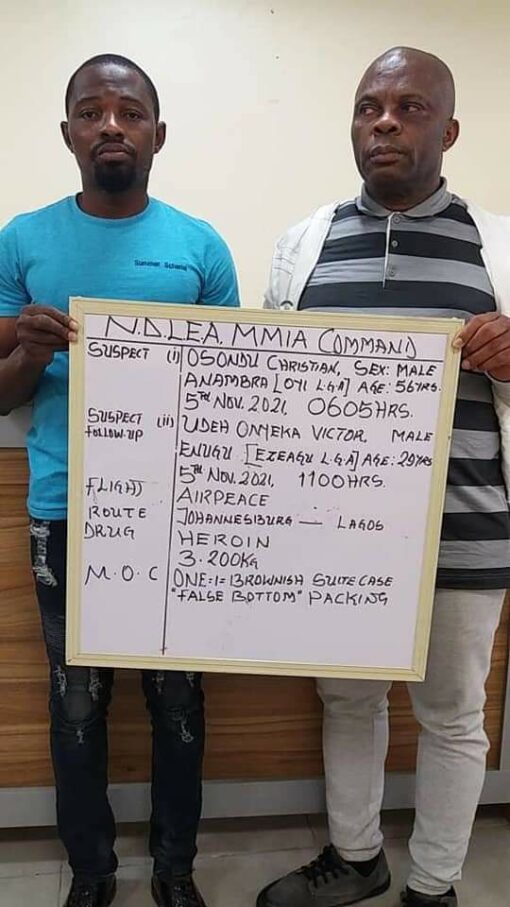 Summer Scheme
N.D.L.E.A. MMIA COMMAND
SUSPECT (i) OSONDU CHRISTIAN, SEX: MALE
ANAMBRA [OYI L.G.A] AGE: 56YRS.
5TH NOV. 2021, 0605HRS.
SUSPECT (ii) UDEH ONYEKA VICTOR, MALE
FOLLOW-UP ENUGU [EZEAGU L.G.A] AGE: 29YRS
5TH NOV. 2021, 1100HRS.
FLIGHT AIRPEACE
ROUTE JOHANNESBURG — LAGOS
DRUG HEROIN
3.200KG
M.O.C ONE=1=BROWNISH SUITE CASE
"FALSE BOTTOM" PACKING